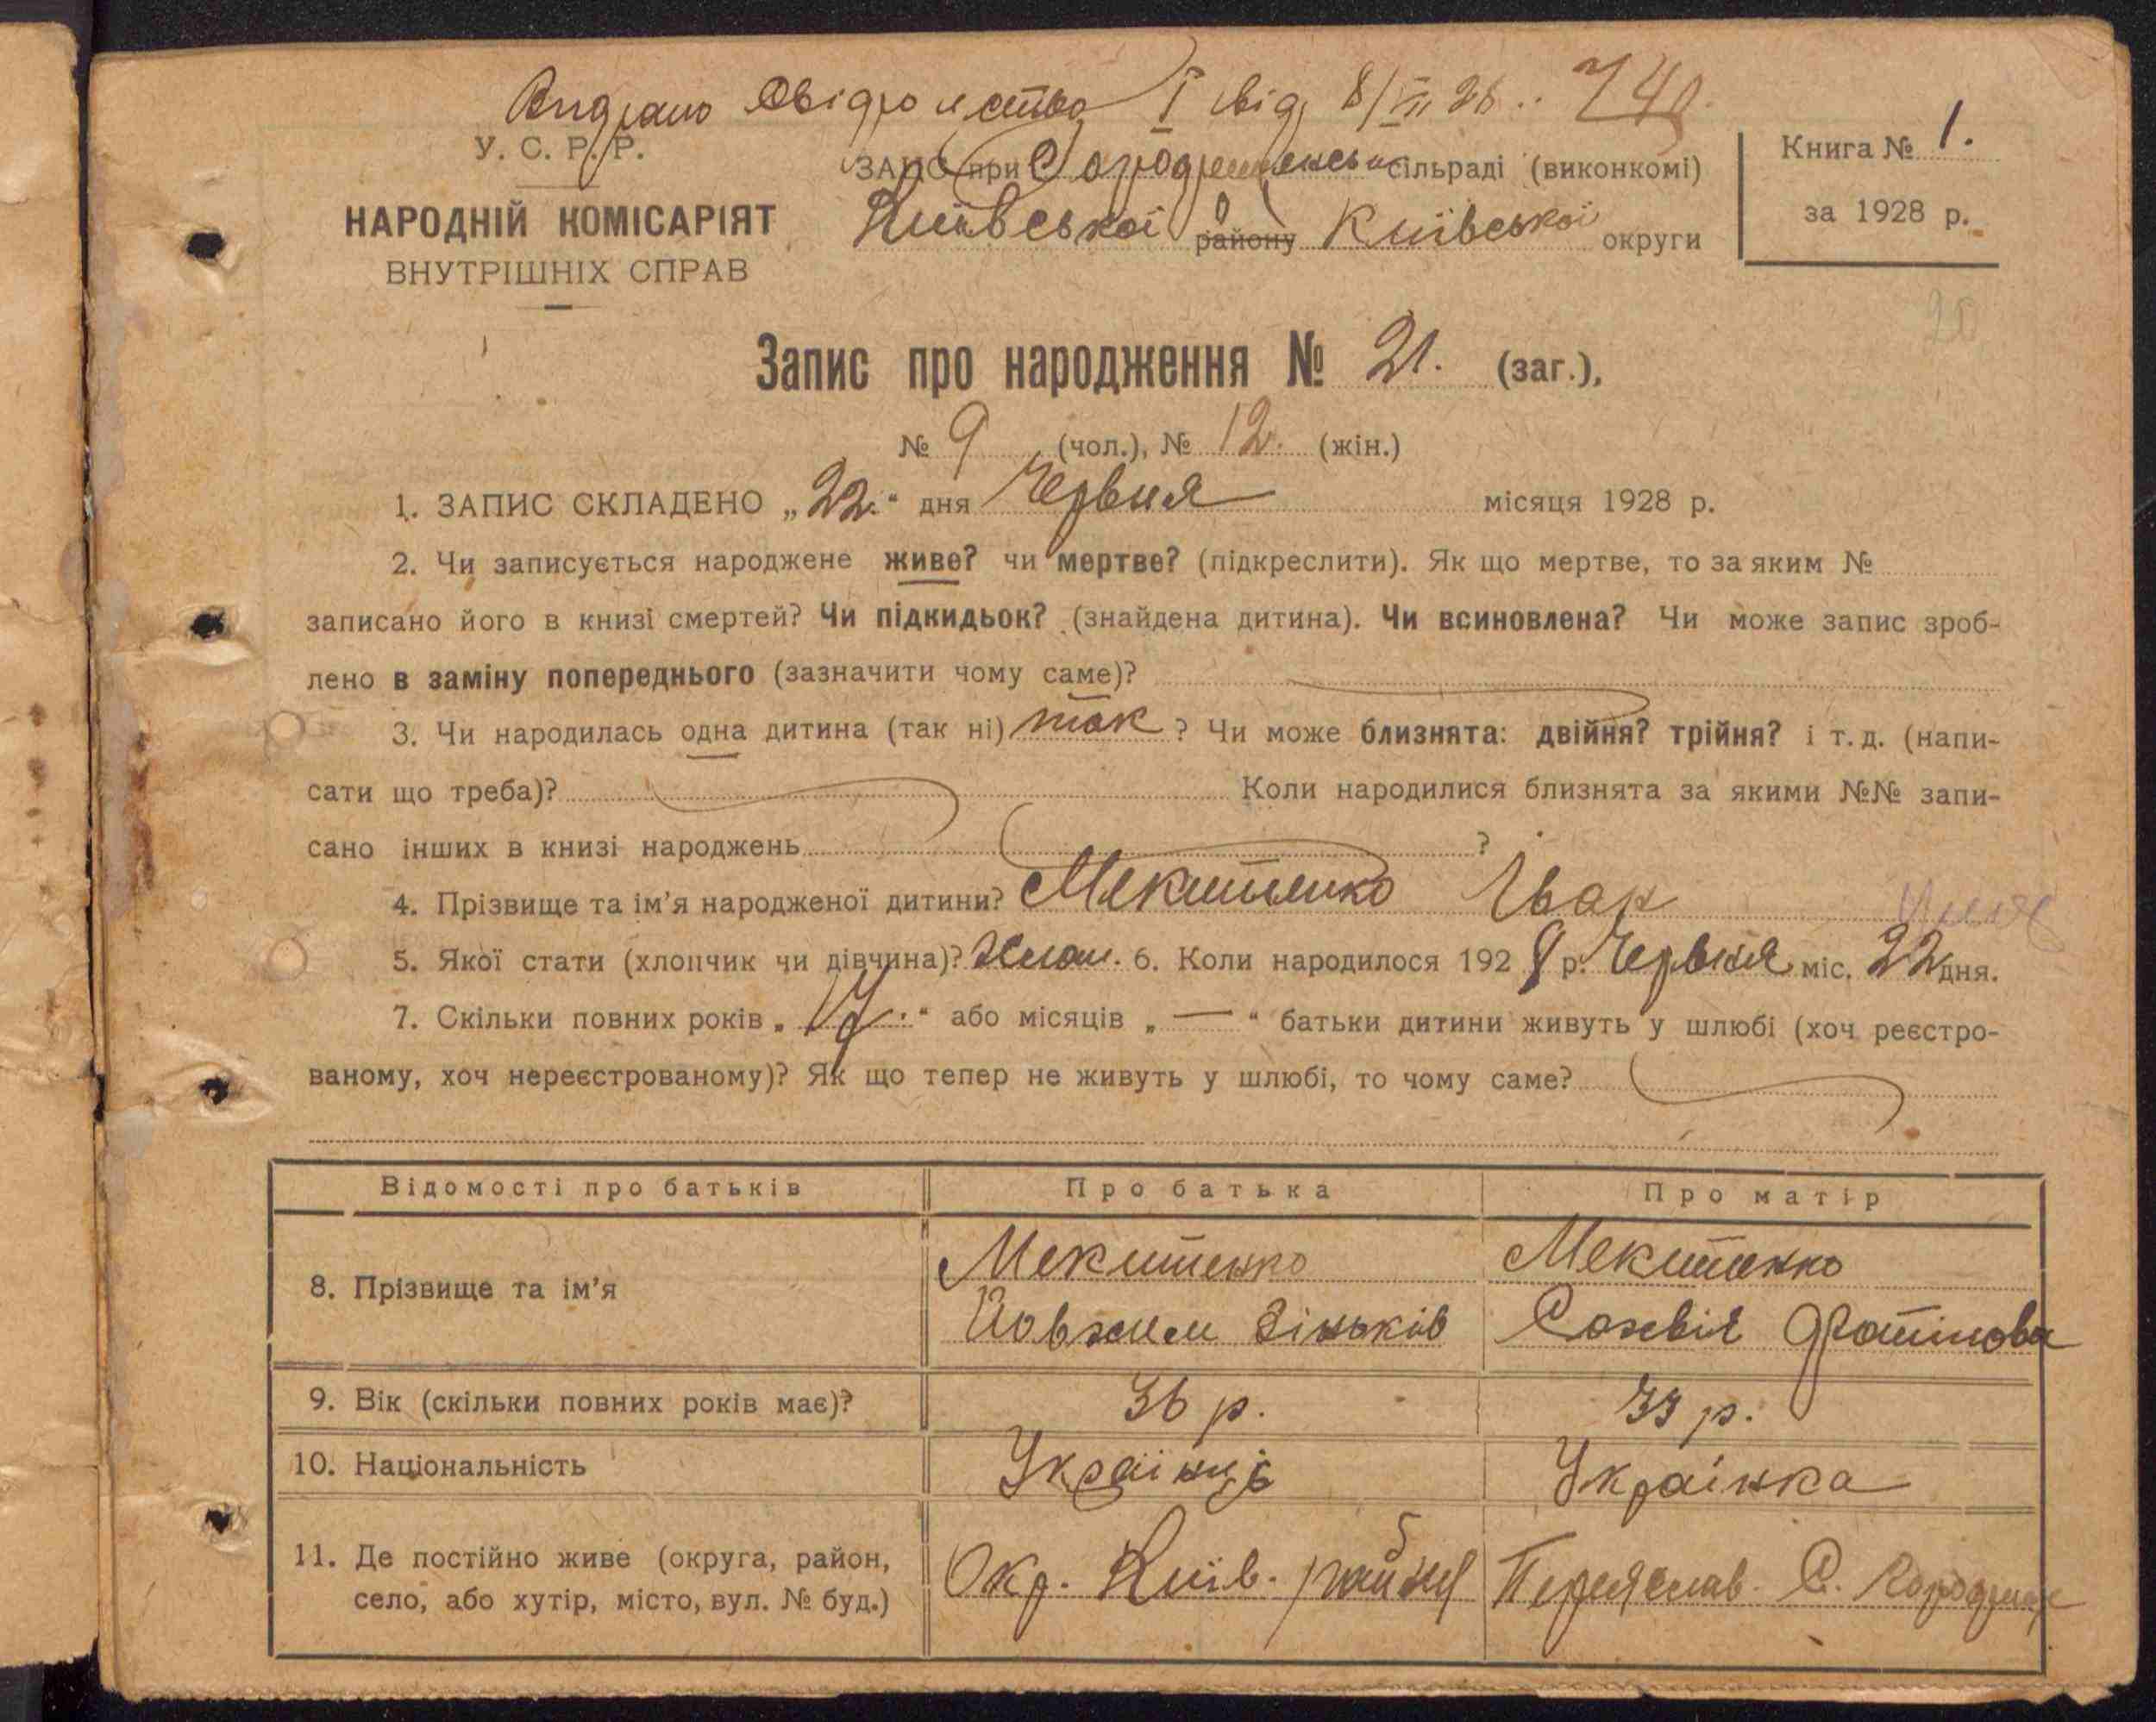 Видано свідоцтво I від 8/VII 28.. 740.
У. С. Р. Р.
ЗАЦС при сільраді (виконкомі)
Книга № 1.
НАРОДНІЙ КОМІСАРІЯТ
Київської району Київської округи
за 1928 р.
ВНУТРІШНІХ СПРАВ
20
Запис про народження № 21. (заг.),
№ 9 (чол.), № 12. (жін.)
1. ЗАПИС СКЛАДЕНО „22.“ дня Червня місяця 1928 р.
2. Чи записується народжене живе? чи мертве? (підкреслити). Як що мертве, то за яким №
записано його в книзі смертей? Чи підкидьок? (знайдена дитина). Чи всиновлена? Чи може запис зроб-
лено в заміну попереднього (зазначити чому саме)?
3. Чи народилась одна дитина (так ні) так? Чи може близнята: двійня? трійня? і т. д. (напи-
сати що треба)? Коли народилися близнята за якими №№ запи-
сано інших в книзі народжень ?
4. Прізвище та ім’я народженої дитини? Мекитенко Іван
5. Якої стати (хлопчик чи дівчина)? Хлоп. 6. Коли народилося 1928 р. Червня міс. 22 дня.
7. Скільки повних років „ “ або місяців „ — “ батьки дитини живуть у шлюбі (хоч реєстро-
ваному, хоч нереєстрованому)? Як що тепер не живуть у шлюбі, то чому саме?
Відомості про батьків
Про батька
Про матір
8. Прізвище та ім’я
Мекитенко
Йовхим Зіньків
Мекитенко
9. Вік (скільки повних років має)?
36 р.
33 р.
10. Національність
Українців
Українка
11. Де постійно живе (округа, район,
село, або хутір, місто, вул. № буд.)
Окр. Київ. район
Переяслав. С.